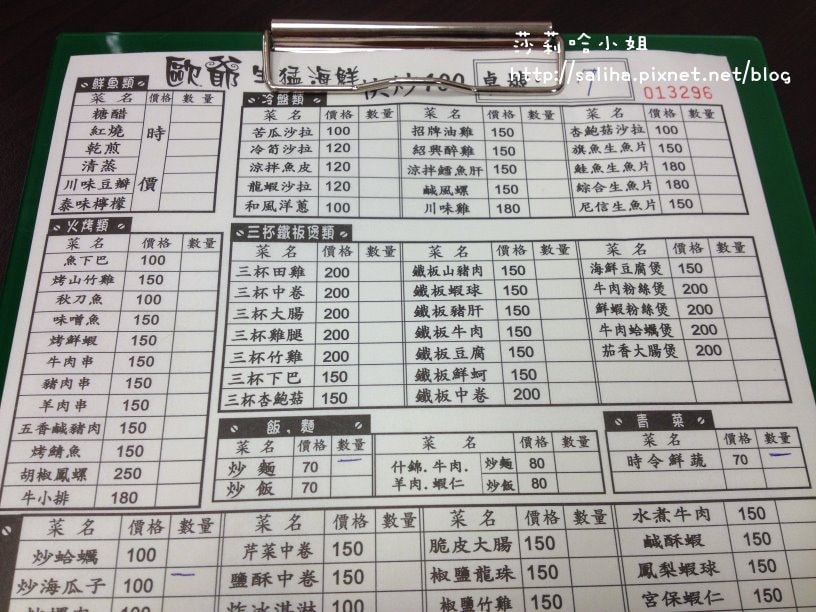 莎莉哈小姐
http://saliha.pixnet.net/blog
歐爺 生猛海鮮 快炒100
013296
鮮魚類
菜名 價格 數量
糖醋
紅燒
乾煎
清蒸
川味豆瓣
泰味檸檬
時價
冷盤類
菜名 價格 數量 菜名 價格 數量 菜名 價格 數量
苦瓜沙拉 100 招牌油雞 150 杏鮑菇沙拉 100
冷筍沙拉 120 紹興醉雞 150 旗魚生魚片 150
涼拌魚皮 120 涼拌鱈魚肝 150 鮭魚生魚片 180
龍蝦沙拉 120 鹹風螺 150 綜合生魚片 180
和風洋蔥 100 川味雞 180 尼信生魚片 150
火烤類
菜名 價格 數量
魚下巴 100
烤山竹雞 150
秋刀魚 100
味噌魚 150
烤鮮蝦 150
牛肉串 150
豬肉串 150
羊肉串 150
五香鹹豬肉 150
烤鯖魚 150
胡椒鳳螺 250
牛小排 180
三杯鐵板煲類
菜名 價格 數量 菜名 價格 數量 菜名 價格 數量
三杯田雞 200 鐵板山豬肉 150 海鮮豆腐煲 150
三杯中卷 200 鐵板蝦球 150 牛肉粉絲煲 200
三杯大腸 200 鐵板豬肝 150 鮮蝦粉絲煲 200
三杯雞腿 200 鐵板牛肉 150 牛肉蛤蠣煲 200
三杯竹雞 200 鐵板豆腐 150 茄香大腸煲 200
三杯下巴 150 鐵板鮮蚵 150
三杯杏鮑菇 150 鐵板中卷 200
飯.麵
菜名 價格 數量 菜名 價格 數量
炒麵 70 什錦.牛肉. 炒麵 80
炒飯 70 羊肉.蝦仁 炒飯 80
青菜
菜名 價格 數量
時令鮮蔬 70
菜名 價格 數量 菜名 價格 數量 菜名 價格 數量 水煮牛肉 150
炒蛤蠣 100 芹菜中卷 150 脆皮大腸 150 鹹酥蝦 150
炒海瓜子 100 鹽酥中卷 150 椒鹽龍珠 150 鳳梨蝦球 150
炸冰淇淋 100 椒鹽竹雞 150 宮保蝦仁 150